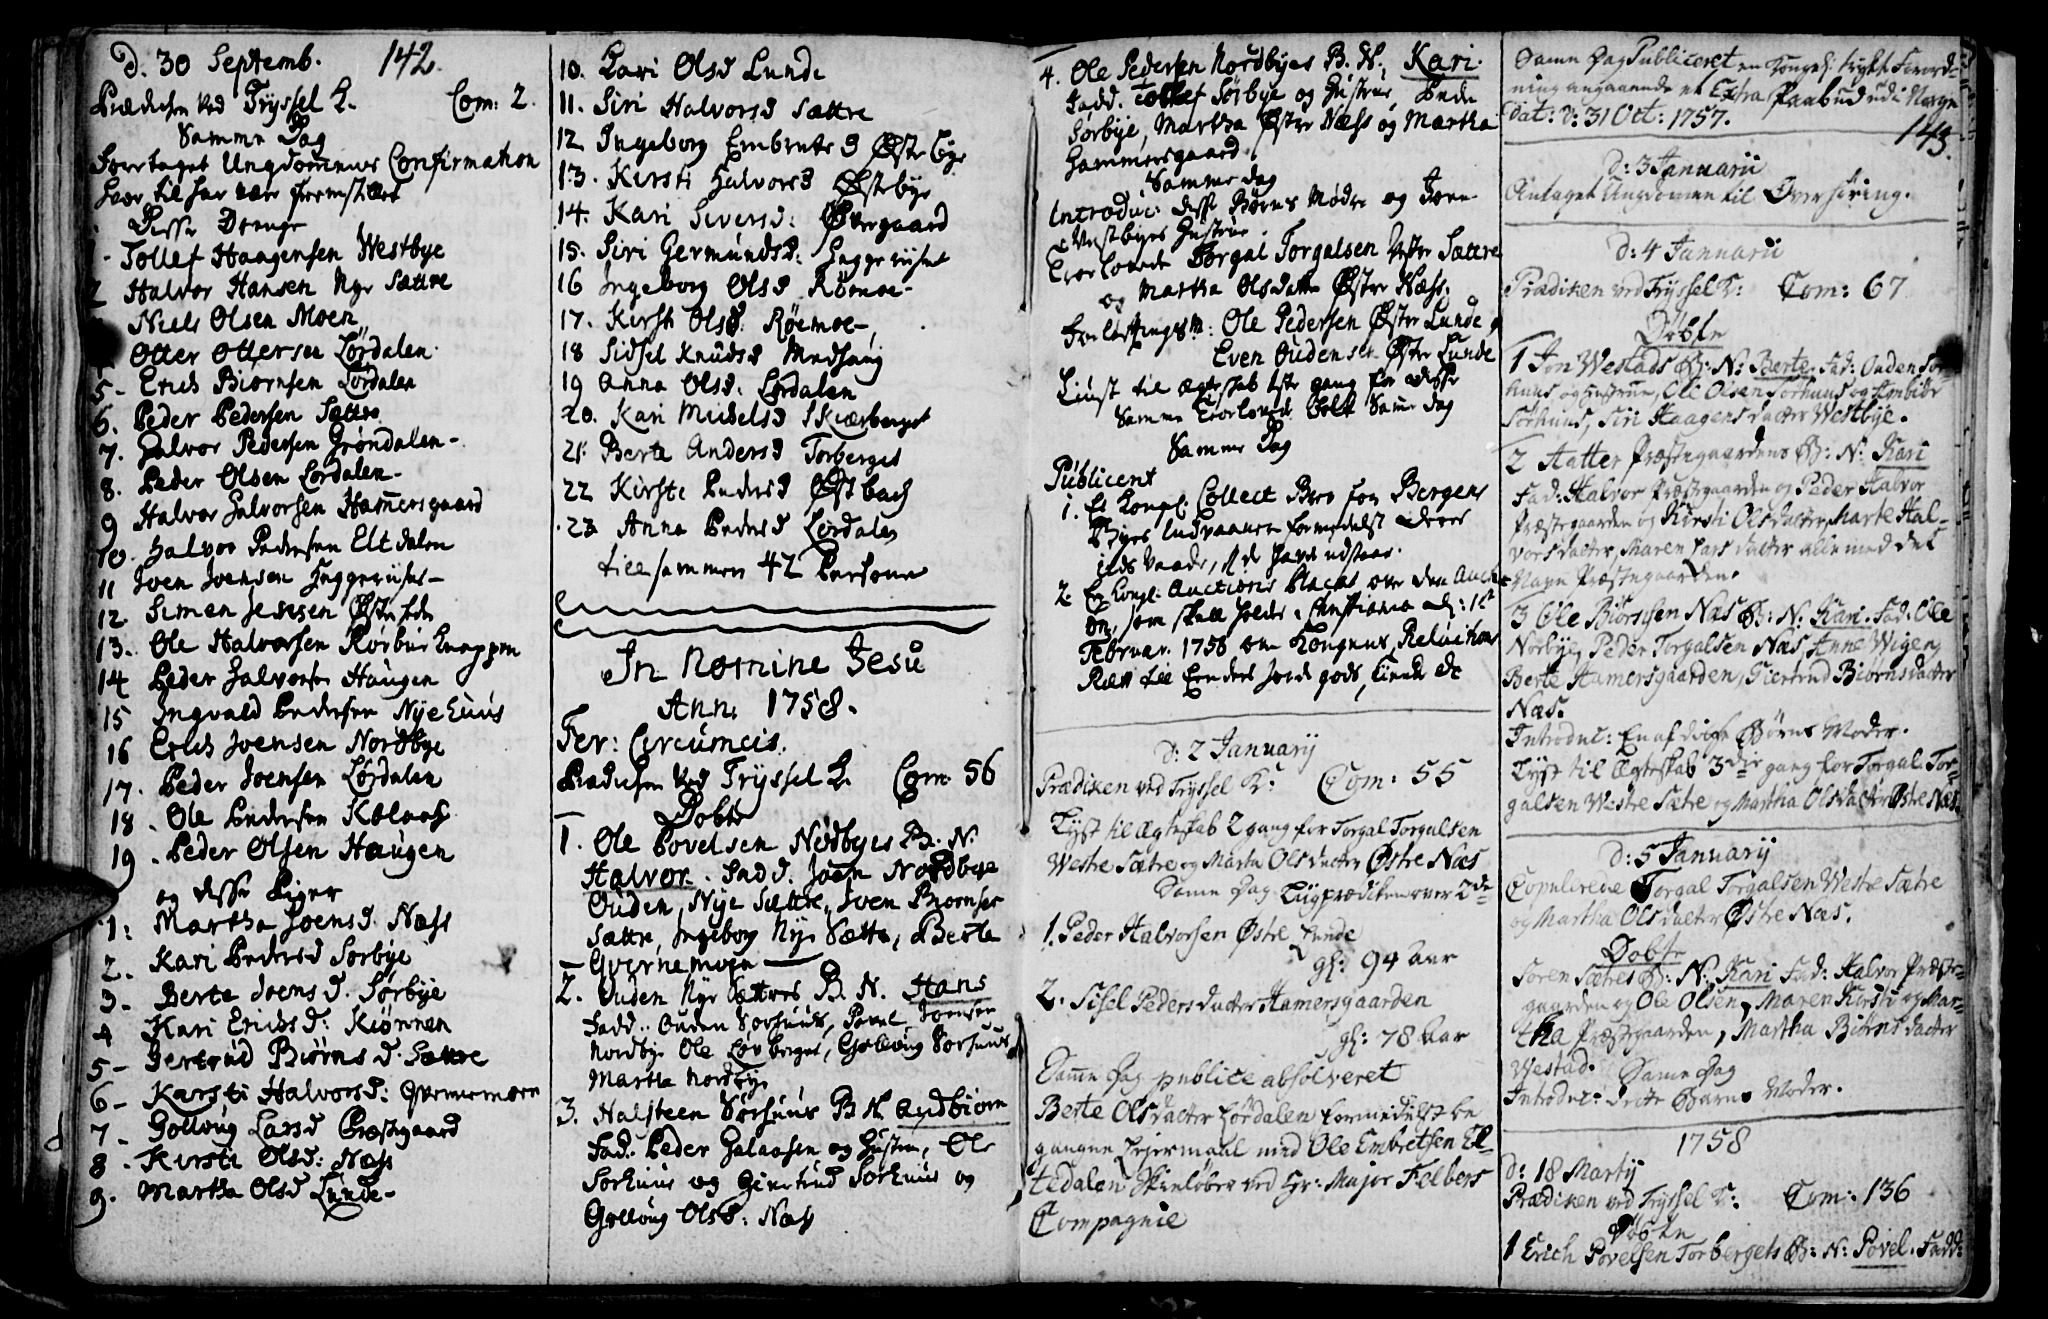 142.
d. 30 Septemb.
Prædiken ved Tryssel K. Com: 2.
Samme Dag
Foretaget Ungdommens Confirmation
hvor til har vær fremstillet
Disse Drenge
1 - Tollef Haagensen Westbye
2 Halvor Hansen Nye Sættre
Niels Olsen Moen
Otter Ottersen Lørdalen.
5 - Erich Biørnsen Lørdalen
6. Peder Pedersen Sættre
7. Halvor Pedersen Grøndalen -
8. Peder Olsen Lørdalen -
9 Halvor Halvorsen Hamersgaard
10. Halvor Pedersen Eltdalen
11 Joen Joensen Hæggeriiset -
12 Simen Jensen Østerhede
13. Ole Halvorsen
14 Peder Halvorsen Haugen
15 Ingvald Pedersen Nyehuus
16 Erich Joensen Nordbye
17. Peder Joensen Lørdalen
18. Ole Pedersen Kolaas
19. Peder Olsen Haugen
og disse Piger
1: Martha Joensd. Næss
2. Kari Pedersd Sørbye
3 - Berte Joensd. Sørbye
4 Kari Erichsd: Kiønnen
5 - Gertrud Biørnsd. Sættre
6 - Karsti Halvorsd: Qvernemoen
7 - Gollaug Larsd Præstgaard
8 - Kirsti Olsd: Næss
9. Martha Olsd Lunde -
10. Kari Olsd Lunde
11. Siri Halvorsd Sættre
12 Ingeborg Embretsd Østbye
13. Kirsti Halvorsd Østbye
14. Kari Siversd: Øvergaard
15. Siri Germundsd: Heggeriiset
16 Ingeborg Olsd Røemoe -
17. Kirsti Olsd. Røemoe -
18 Sidsel Knudsd Medhaug
19 Anna Olsd. Lørdalen
20. Kari Mickelsd Skiærberget
21. Berte Andersd Torberget
22 Kirste Pedersd Østbach
23 Anna Pedersd Lørdalen
tilsammen 42 Persone
In Nomine Jesu
Ann. 1758.
Fer: Circumcis.
Prædiken ved Tryssel K. Com. 56
Døbte
1. Ole Povelsen Nordbyes B. N.
Halvor. Fadd. Joen Nordbye
Ouden Nye Sættre, Iven Biørnsen
Sættre, Ingeborg Nye Sættre, Berte
Qvernemoen
2. Ouden Nye Sættres B. N. Hans
Fadd.. Ouden Sørhuus, Povel Joensen
Nordbye Ole Løvberget, Gollaug Sørhuus
Martha Nordbye
3. Halsteen Sørhuus B N. Audbiørn
Fad. Peder Galaasen og Hustru, Ole
Sørhuus og Giertrud Sørhuus og
Gollaug Olsd: Næss
4. Ole Pedersen Nordbyes B. N. Kari
Fadd. Tollef Sørbye og Hustrue, Peder
Sørbye, Martha Østre Næss og Martha
Hammersgaard.
Samme dag
Introduc: disse Børns Mødre og Joen
Westbyes Hustrue.
Trolovede Torgal Torgalsen Vester Sættre
og Martha Olsdatter Østre Næss.
Forløftingsm: Ole Pedersen Øster Lunde og
Even Oudensen Øster Lunde
Liust til Ægteskab 1ste gang for disse
Samme Trolovede Folk Samme dag
Samme Dag
Publicert
1. Et Kongl: Collect Brev for Bergens
Byes Indvaanere formedelst deres
ilds vaade, de have udstaaet.
2. En Kongl: Auctions Placat over den Auction
som skal holdes i Christiania d: 1ste
Februar. 1758 om Kongens Reluitions
Rætt til Bønders jorde gods,
d: 2 January
Prædiken ved Tryssel K: Com: 55
Lyst til Ægteskab 2 gang for Torgal Torgalsen
Westre Sætre og Marta Olsdatter Østre Næs
Same Dag Liigprædiken over 2de
1. Peder Halvorsen Østre Lunde
gl: 94 Aar
2. Sisel Pedersdatter Hamersgaarden
gl: 78 Aar
Same Dag publice absolveret
Berte Olsdatter Lørdalen formedelst be
gangne Leiermaal med Ole Embretsen El-
tedalen Skieløber ved Hr: Major Felbers
Compagnie
Same Dag Publiceret en Kongel: trykt Forord-
ning angaaende et Extra Paabud udi Norge
Dat: d: 31 Oct: 1757.
143.
d: 3 Januarii
Antaget Ungdomen til Overhøring.
d: 4 Januarii
Prædiken ved Tryssel K: Com: 67
Døbte
1 Jon Westads B: N: Berte. Fad: Ouden Sør-
huus og Hustrue, Ole Olsen Sørhuus og Embiør
Sørhuus, Siri Haagensdatter Westbye.
2 Hatter Præstegaardens B: N: Kari
Fad: Halvor Præstgaarden og Peder Halvor
Præstegaarden og Kirsti Olsdatter, Marte Hal-
vorsdatter, Maren Larsdatter alle med det
Navn Præstegaarden.
3 Ole Biørnsen Næs B: N: Kari. Fad: Ole
Norbye, Peder Torgalsen Næs, Anne Wigen,
Berte Hamersgaarden, Giertrud Biørnsdatter
Næs.
Introduc: En af disse Børns Moder.
Lyst til Ægteskab 3die gang for Torgal Tor-
galsen Westre Sætre og Martha Olsdatter Østre Næs.
d: 5 January
Copulerede Torgal Torgalsen Westre Sætre
og Martha Olsdatter Østre Næs.
Døbte
Søren Sætres B: N: Kari Fad: Halvor Præste-
gaarden og Ole Olsen, Maren Kirsti og Mar-
tha Præstgaarden, Martha Biørnsdatter
Westad. Same Dag
Introduc: dette Barns Moder.
1758
d: 18 Martij
Prædiken ved Tryssel K: Com: 136
Døbte
1 Erich Povelsen Torbergets B: N: Povel. Fadd: